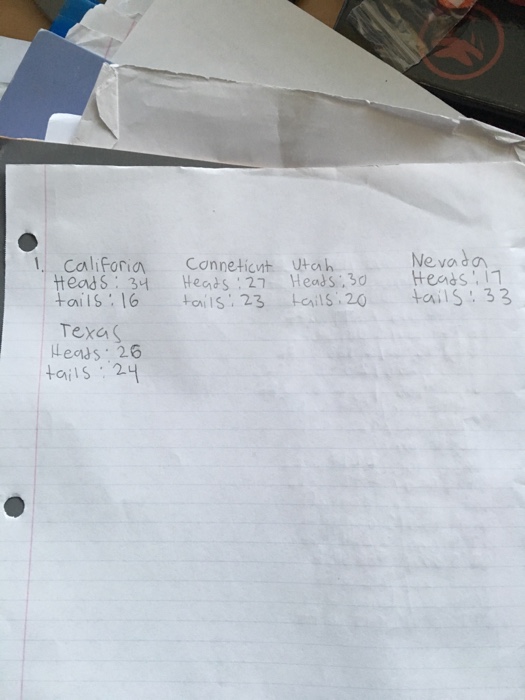 1. Califoria
Heads: 34
tails: 16
Conneticut
Heads: 27
tails: 23
Utah
Heads: 30
tails: 20
Nevada
Heads: 17
tails: 33
Texas
Heads: 26
tails: 24